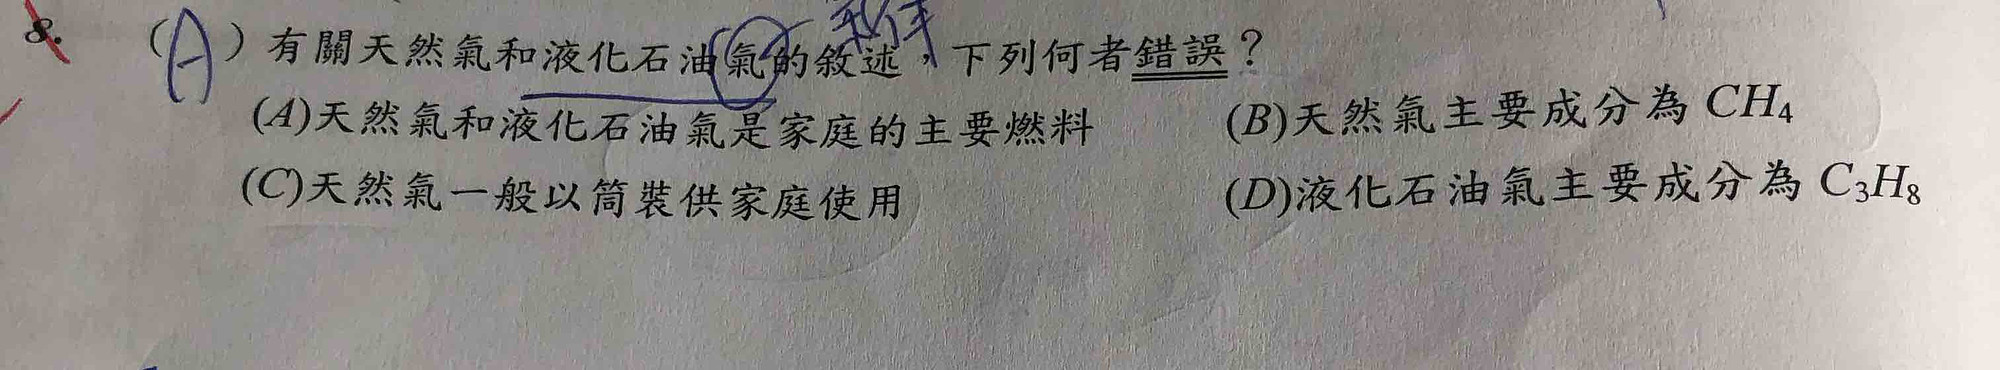 8. (A) 有關天然氣和液化石油氣的敘述,下列何者錯誤?
(A)天然氣和液化石油氣是家庭的主要燃料 (B)天然氣主要成分為 CH₄
(C)天然氣一般以筒裝供家庭使用 (D)液化石油氣主要成分為 C₃H₈